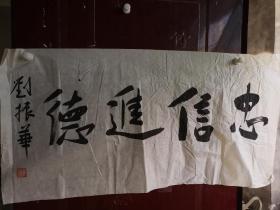 忠信進德
劉振華